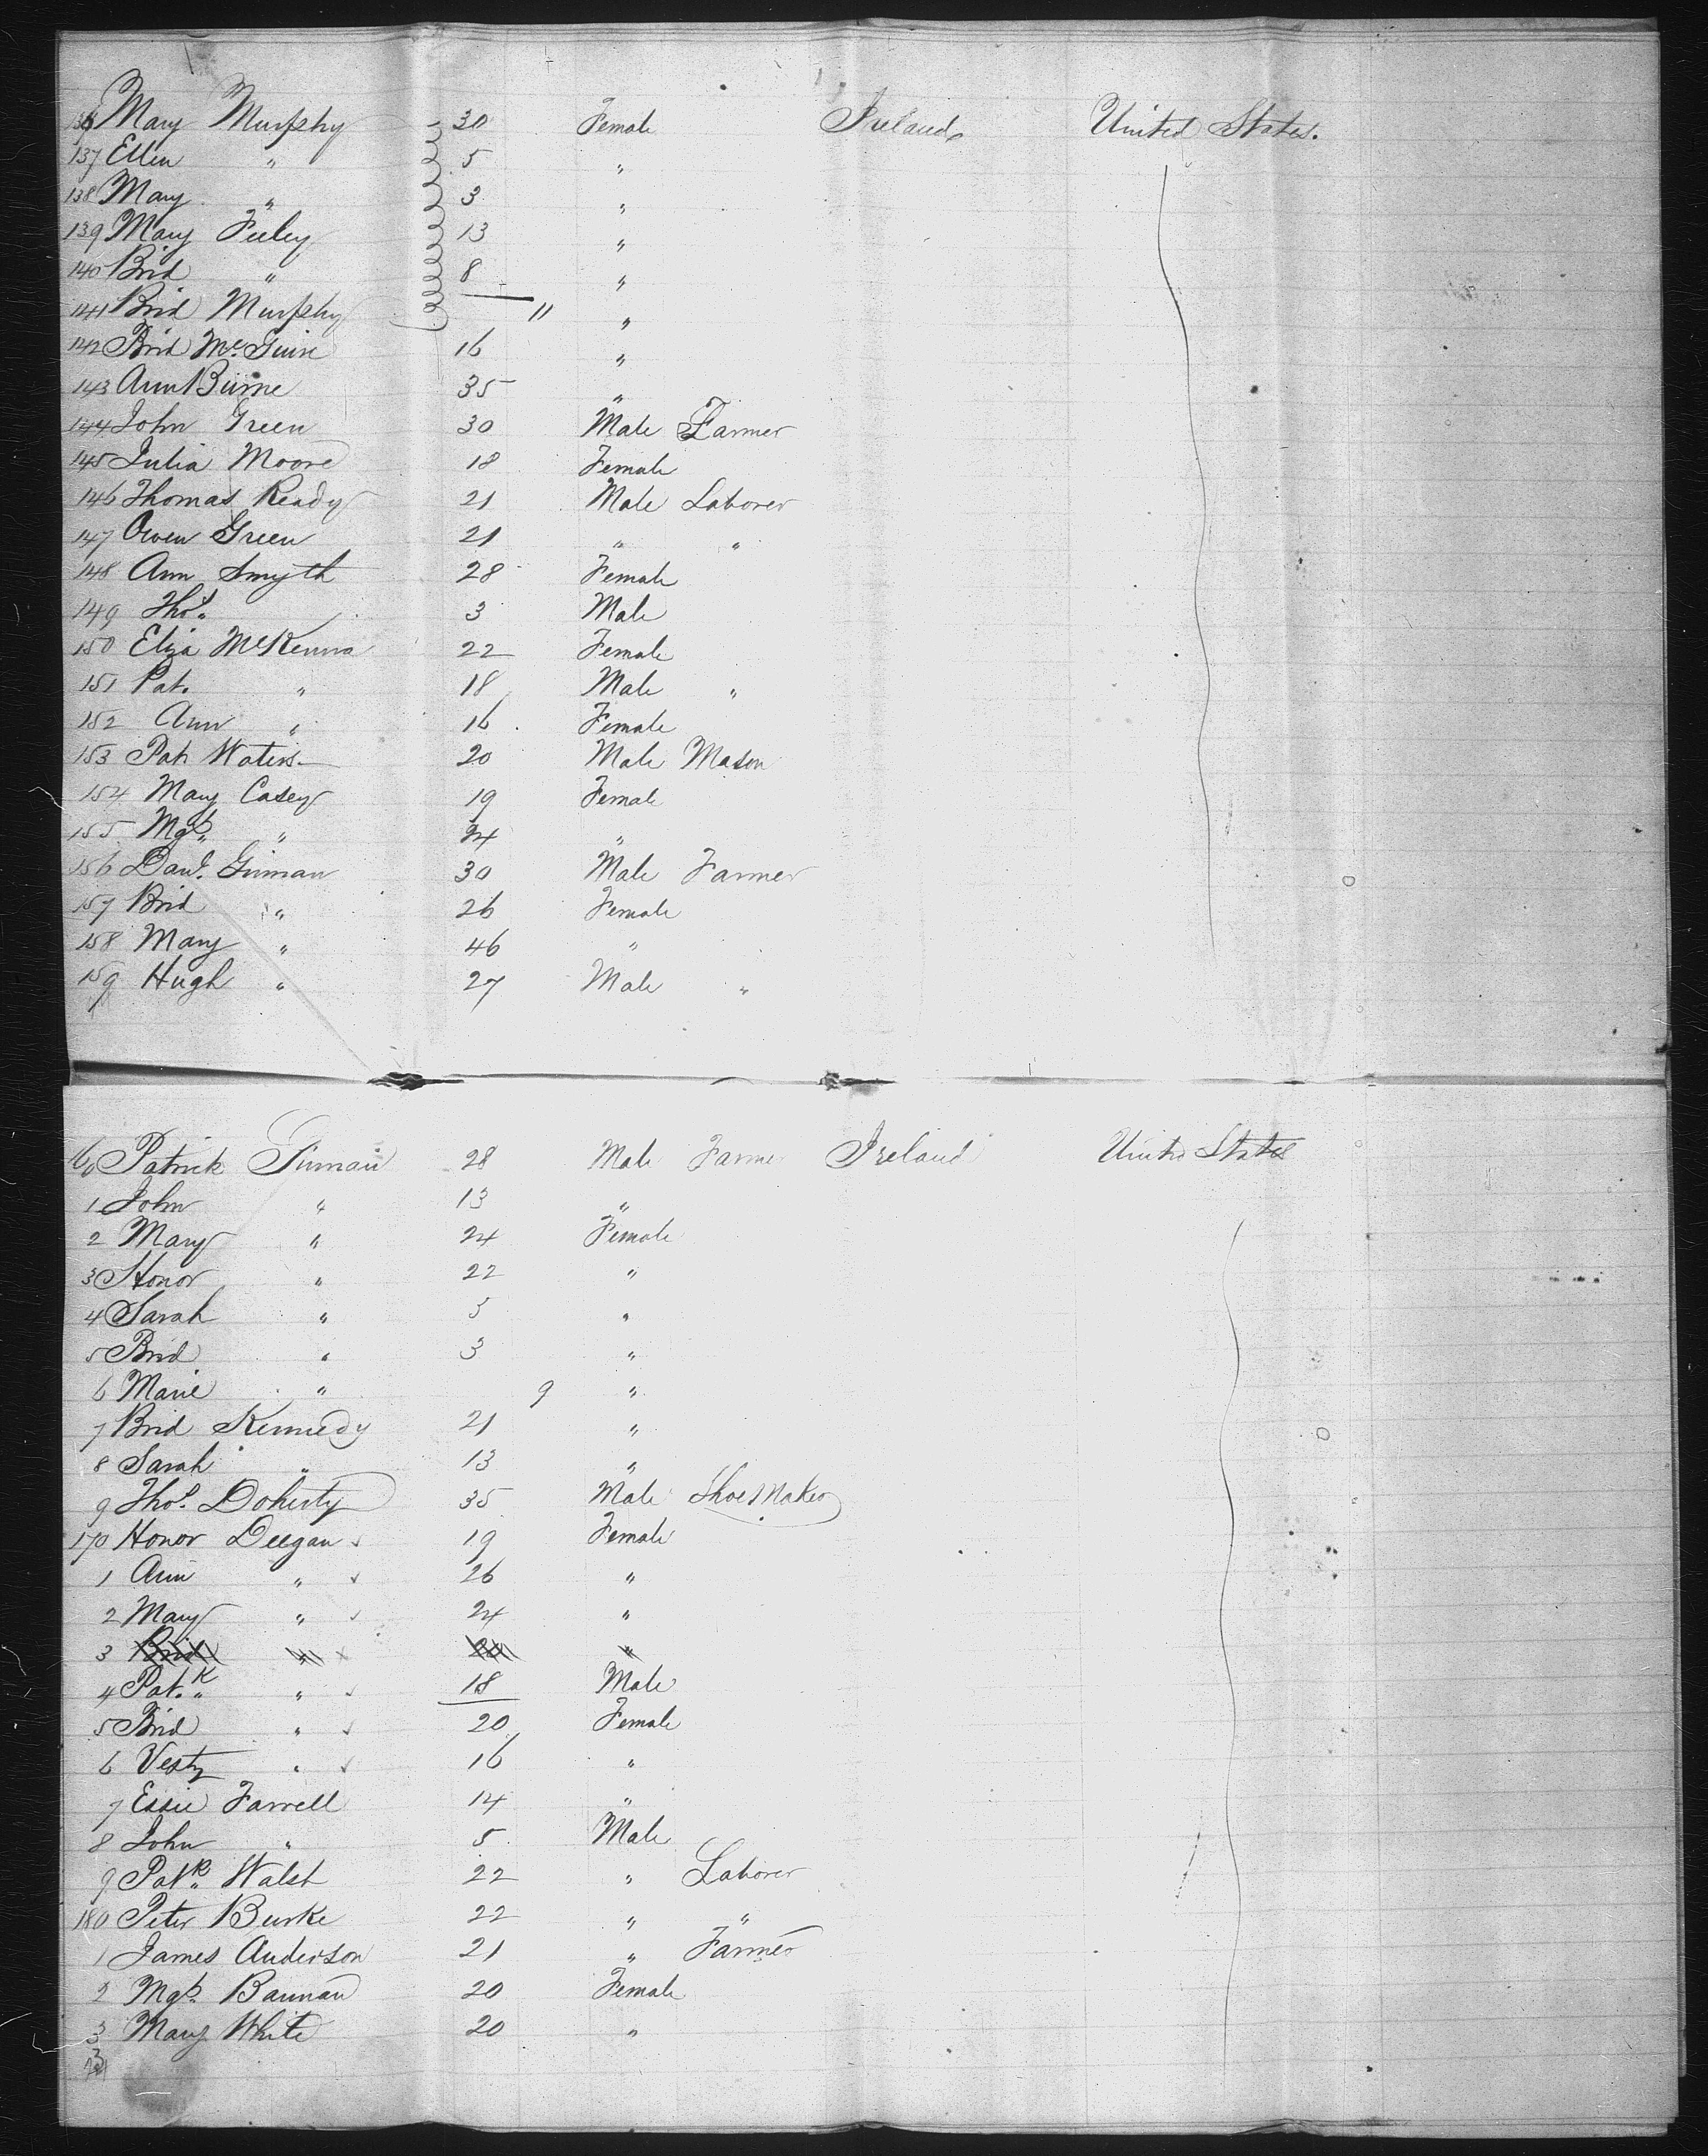 136 Mary Murphy 30 Female Ireland United States.
137 Ellen " 5 "
138 Mary " 3 "
139 Mary Feeley 13 "
140 Brid " 8 "
141 Brid Murphy 11 "
142 Brid McGuire 16 "
143 Ann Burne 35 "
144 John Green 30 Male Farmer
145 Julia Moore 18 Female
146 Thomas Ready 21 Male Laborer
147 Owen Green 21 " "
148 Ann Smyth 28 Female
149 Thos. 3 Male
150 Eliza McKenna 22 Female
151 Pat. " 18 Male "
152 Ann " 16 Female
153 Pat Waters 20 Male Mason
154 Mary Casey 19 Female
155 Mgt. " 24 "
156 Danl. 30 Male Farmer
157 Brid " 26 Female
158 Mary " 46 "
159 Hugh " 27 Male "
160 Patrick 28 Male Farmer Ireland United States
1 John " 13 "
2 Mary " 24 Female
3 Honor " 22 "
4 Sarah " 5 "
5 Brid " 3 "
6 Marie " 9 "
7 Brid Kennedy 21 "
8 Sarah " 13 "
9 Thos. Doherty 35 Male Shoe Maker
170 Honor Deegan 19 Female
1 Ann " 26 "
2 Mary " 24 "
3 Brid " 20 "
4 Patk. " 18 Male
5 Brid " 20 Female
6 Vesty " 16 "
7 Essie Farrell 14 "
8 John " 5 Male
9 Patk. Walsh 22 " Laborer
180 Peter Burke 22 " "
1 James Anderson 21 " Farmer
2 Mgt. Bannan 20 Female
3 Mary White 20 "